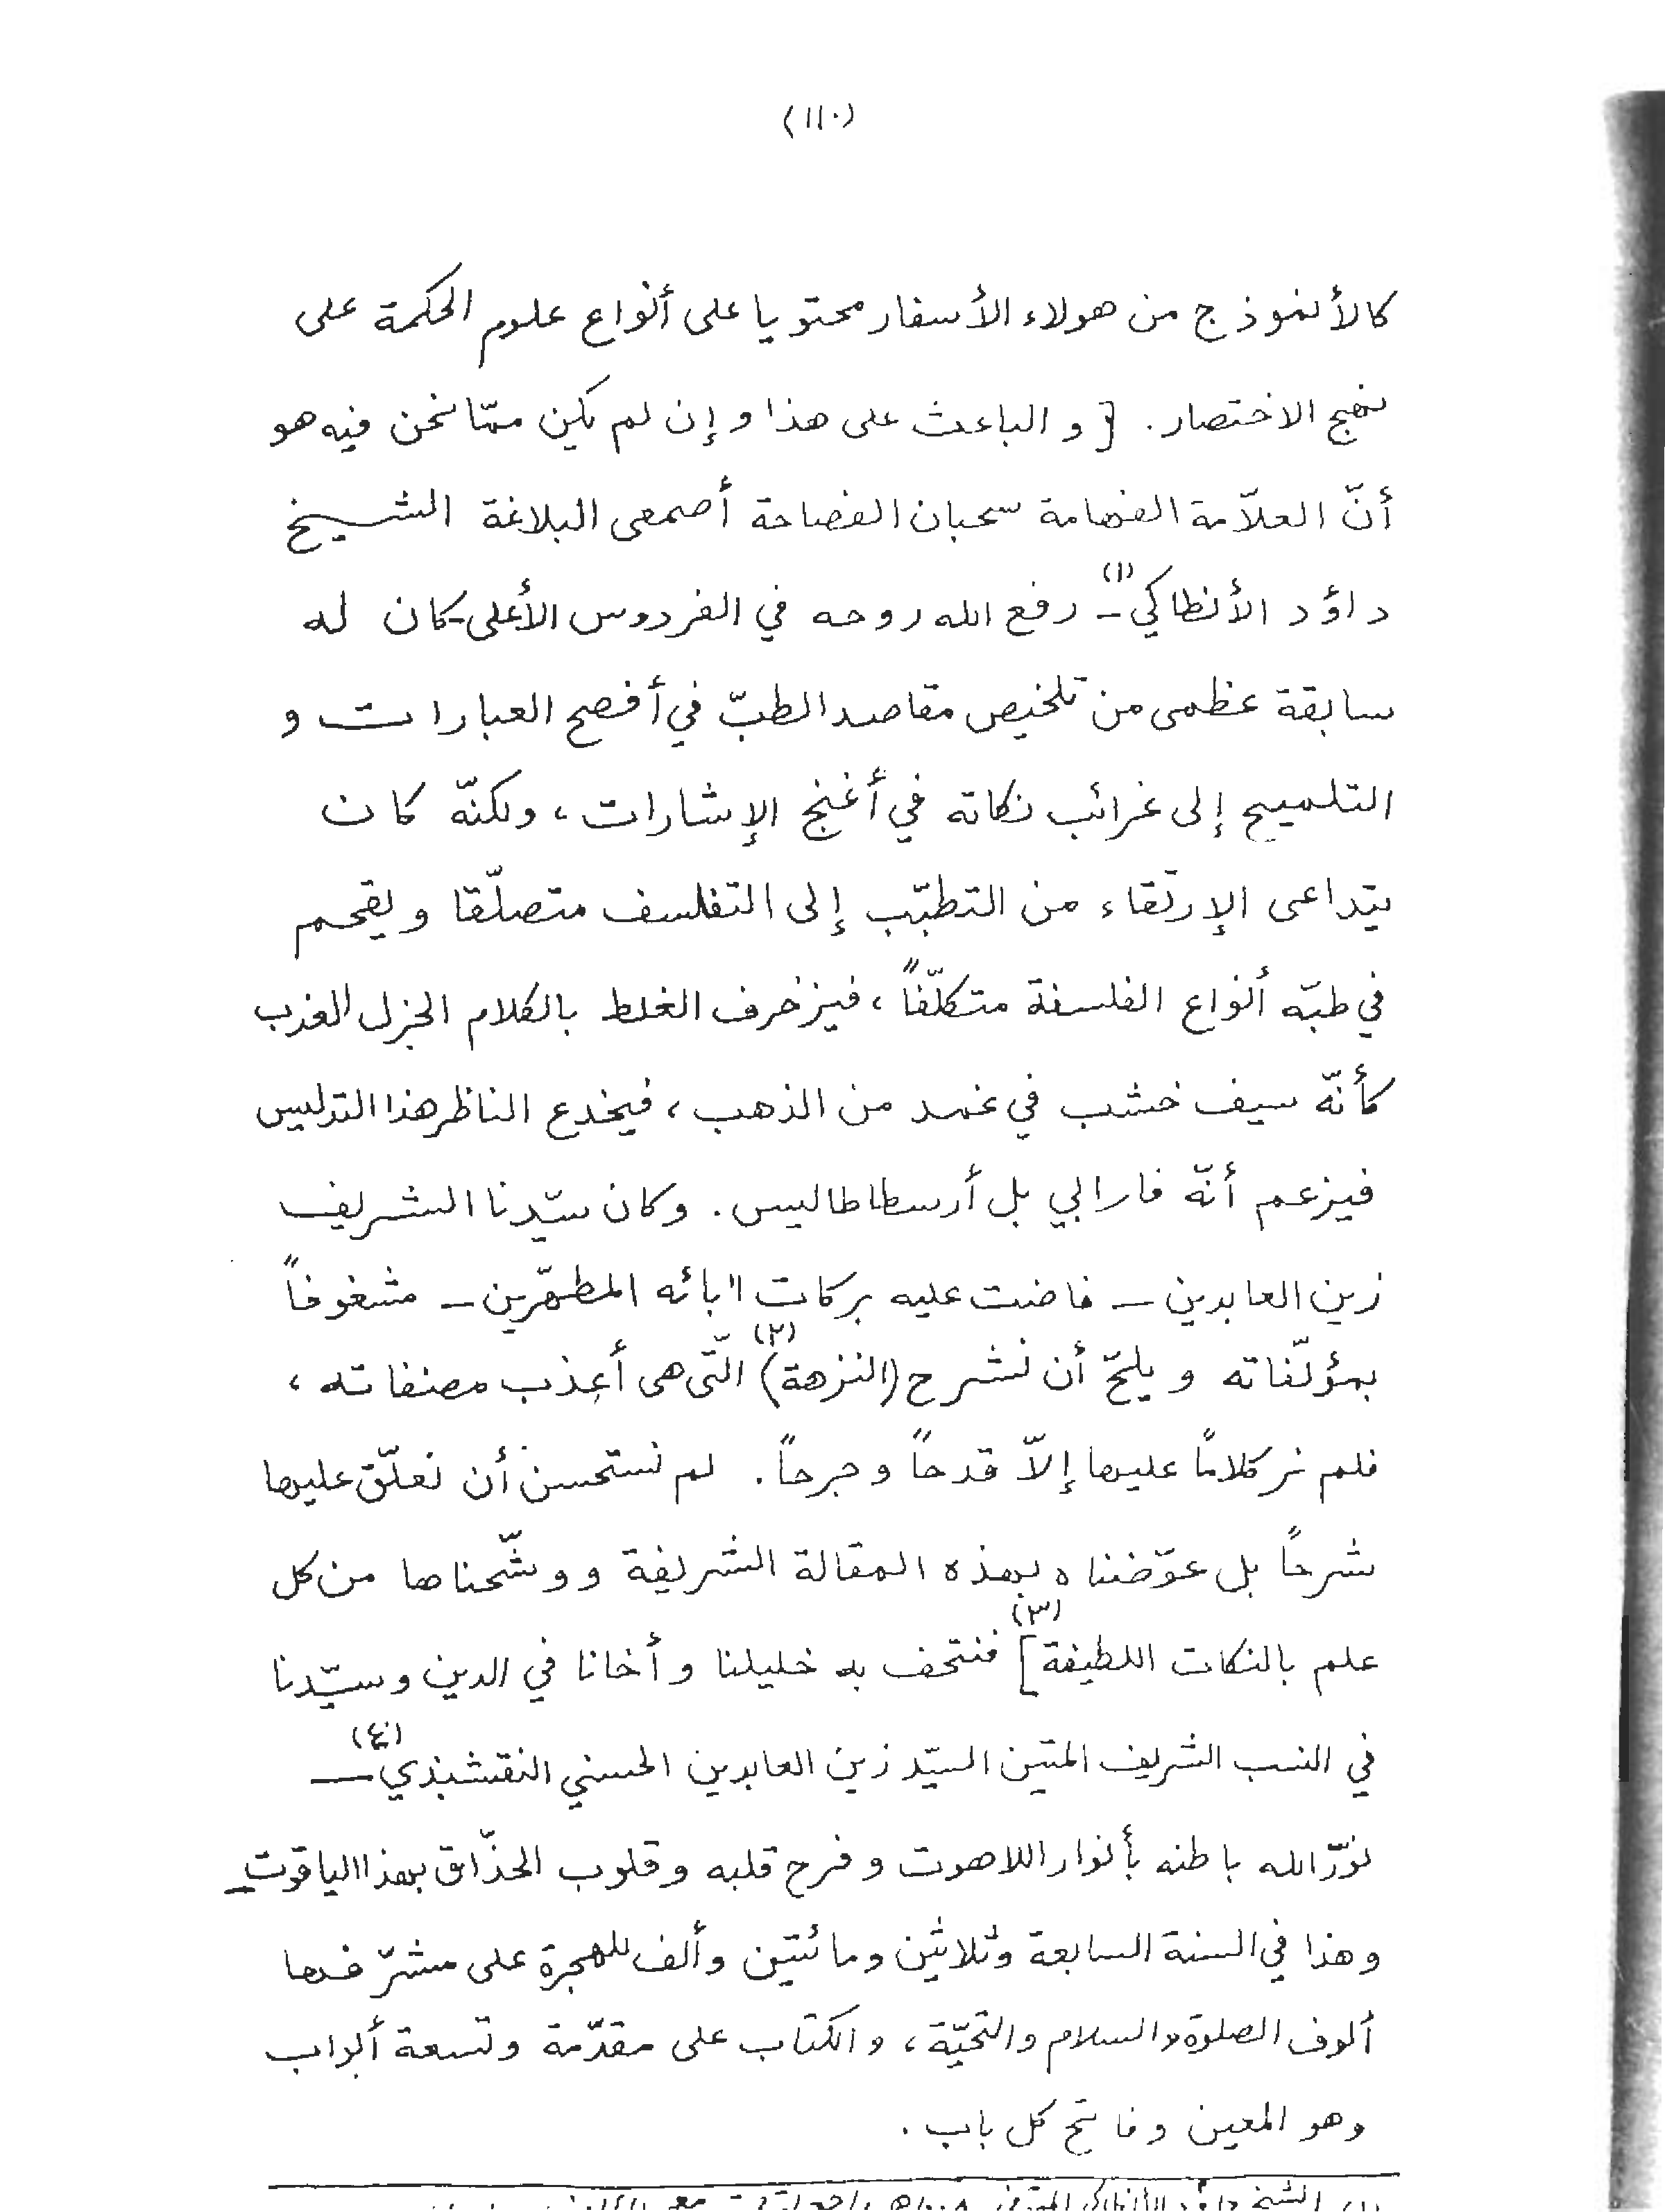 (١١٠)
كالأنموذج من هولاء الأسفار محتويا على أنواع علوم الحكمة على
نهج الاختصار. [و الباعث على هذا و إن لم يكن ممّا نحن فيه هو
أنّ العلاّمة الفهامة سحبان الفصاحة أصمعى البلاغة الشيخ
داؤد الأنطاكي(١) ـ رفع الله روحه في الفردوس الأعلى ـ كان له
سابقة عظمى من تلخيص مقاصد الطبّ في أفصح العبارات و
التلميح إلى غرائب نكاته في أغنج الإشارات، ولكنّه كان
يتداعى الإرتقاء من التطبّب إلى التفلسف متصلّقا ويقحم
في طبّه أنواع الفلسفة متكلّفاً، فيزخرف الغلط بالكلام الجزل العذب
كأنّه سيف خشب في غمد من الذهب، فيخدع الناظر هذا التدليس
فيزعم أنّه فارابي بل أرسطاطاليس. وكان سيّدنا الشريف
زين العابدين ـ فاضت عليه بركات اٰبائه المطهّرين ـ مشغوفاً
بمؤلّفاته ويلحّ أن نشرح (النزهة)(٢) الّتى هى أعذب مصنفاته،
فلم نر كلامًا عليها إلاّ قدحاً وجرحاً. لم نستحسن أن نعلّق عليها
شرحاً بل عوّضناه بهذه المقالة الشريفة ووشّحناها من كل
علم بالنكات اللطيفة](٣) فنتحف به خليلنا وأخانا في الدين وسيّدنا
في النسب الشريف المتين السيّد زين العابدين الحسني النقشبندي(٤) ـ
نوّر الله باطنه بأنوار اللاهوت وفرح قلبه وقلوب الحذّاق بهذا الياقوت ـ
وهذا في السنة السابعة وثلاثين ومائتين وألف للهجرة على مشرّفها
ألوف الصلوة والسلام والتحيّة، والكتاب على مقدّمة وتسعة أبواب
وهو المعين وفاتح كل باب.